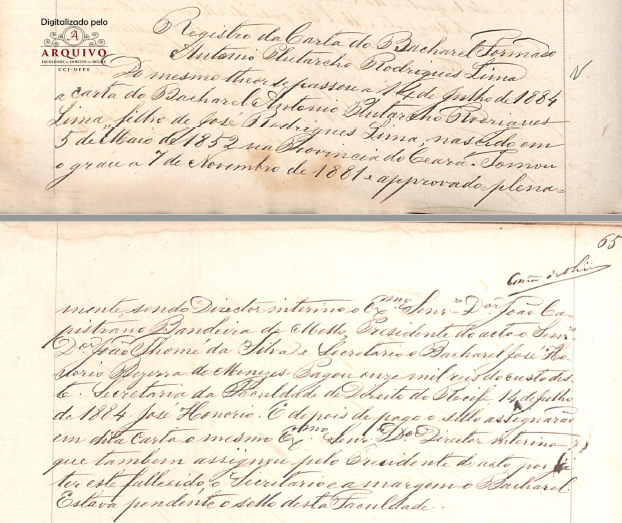 Digitalizado pelo
A
ARQUIVO
FACULDADE DE DIREITO DO RECIFE
CCJ-UFPE
Registro da Carta do Bacharel Formado
Antonio Plutarcho Rodrigues Lima
Do mesmo theor se passou a 14 de Julho de 1884
a carta do Bacharel Antonio Plutarcho Rodrigues
Lima, filho de José Rodrigues Lima, nascido em
5 de Maio de 1852 na Provincia do Ceará. Tomou
o grau a 7 de Novembro de 1881 e approvado plena=
65
mente, sendo Director interino o Exmo Senr Dor João Ca-
pistrano Bandeira de Mello Presidente do acto o Senr
Dor João Thomé da Silva e Secretario o Bacharel José Ho-
norio Bezerra de Menezes. Pagou onze mil reis do custo des-
te. Secretaria da Faculdade de Direito do Recife 14 de julho
de 1884. José Honorio. E depois de pago o sello assignarão
em dita Carta o mesmo Exmo Senr Dor Director interino
que tambem assignou pelo Presidente do acto por já
ter este fallecido, o Secretario e a margem o Bacharel.
Estava pendente o sello desta Faculdade.